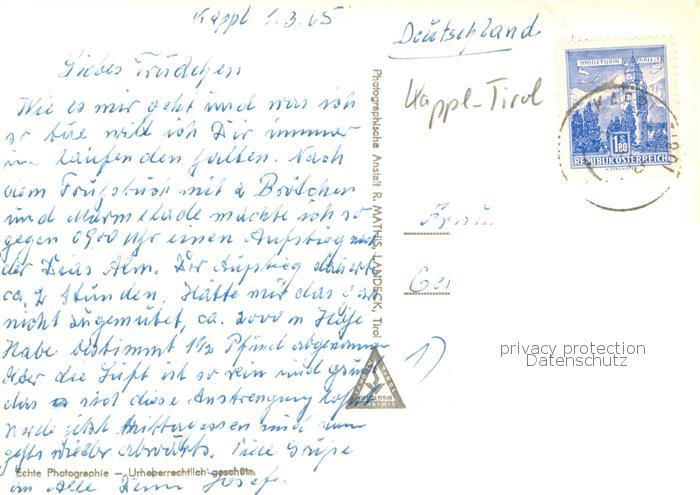 Kappl 1.3.65
Liebes Trudchen
Wie es mir geht und was ich
so tue will ich Dir immer
im laufenden halten. Nach
dem Frühstück mit 2 Brötchen
und Murmelade machte ich so
gegen 0900 Uhr einen Aufstieg nach
der Dias Alm. Der Aufstieg dauert
ca. 2 Stunden. Hätte mir das
nicht zugemutet, ca. 2000 m Höhe
Habe bestimmt 1½ Pfund abgenommen
Aber die Luft ist so rein und
das diese Anstrengung
Werde jetzt Mittagessen und dann
gehts wieder abwärts. Viele Grüße
an Alle Deine Josefe.
Echte Photographie — Urheberrechtlich geschützt
Photographische Anstalt R. MATHIS, LANDECK, Tirol
Deutschland
Kappl-Tirol
MÜNZTURM HALL I.T.
S 1.80
REPUBLIK ÖSTERREICH
KAPPL TIROL
Frau
privacy protection
Datenschutz